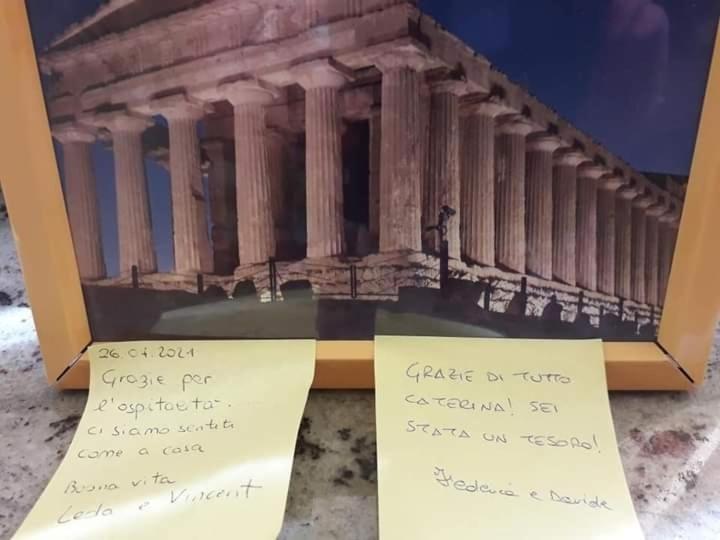 26.07.2021
Grazie per
l'ospitalità.
ci siamo sentiti
come a casa
Buona vita
Leda e Vincent
GRAZIE DI TUTTO
CATERINA! SEI
STATA UN TESORO!
Federica e Davide